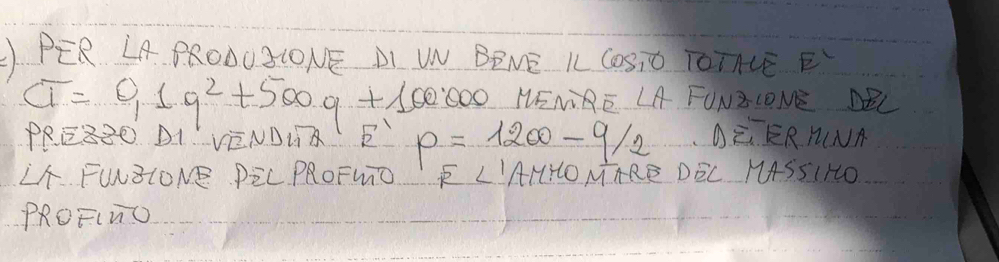 .) PER LA PRODUZIONE DI UN BENE IL COSTO TOTALE E'
CT = 0,1q² + 500q + 100'000 MENTRE LA FUNZIONE DEL
PREZZO DI VENDITA E' p = 1200 - q/2 . DETERMINA
LA FUNZIONE DEL PROFITTO E L'AMMONTARE DEL MASSIMO
PROFITTO